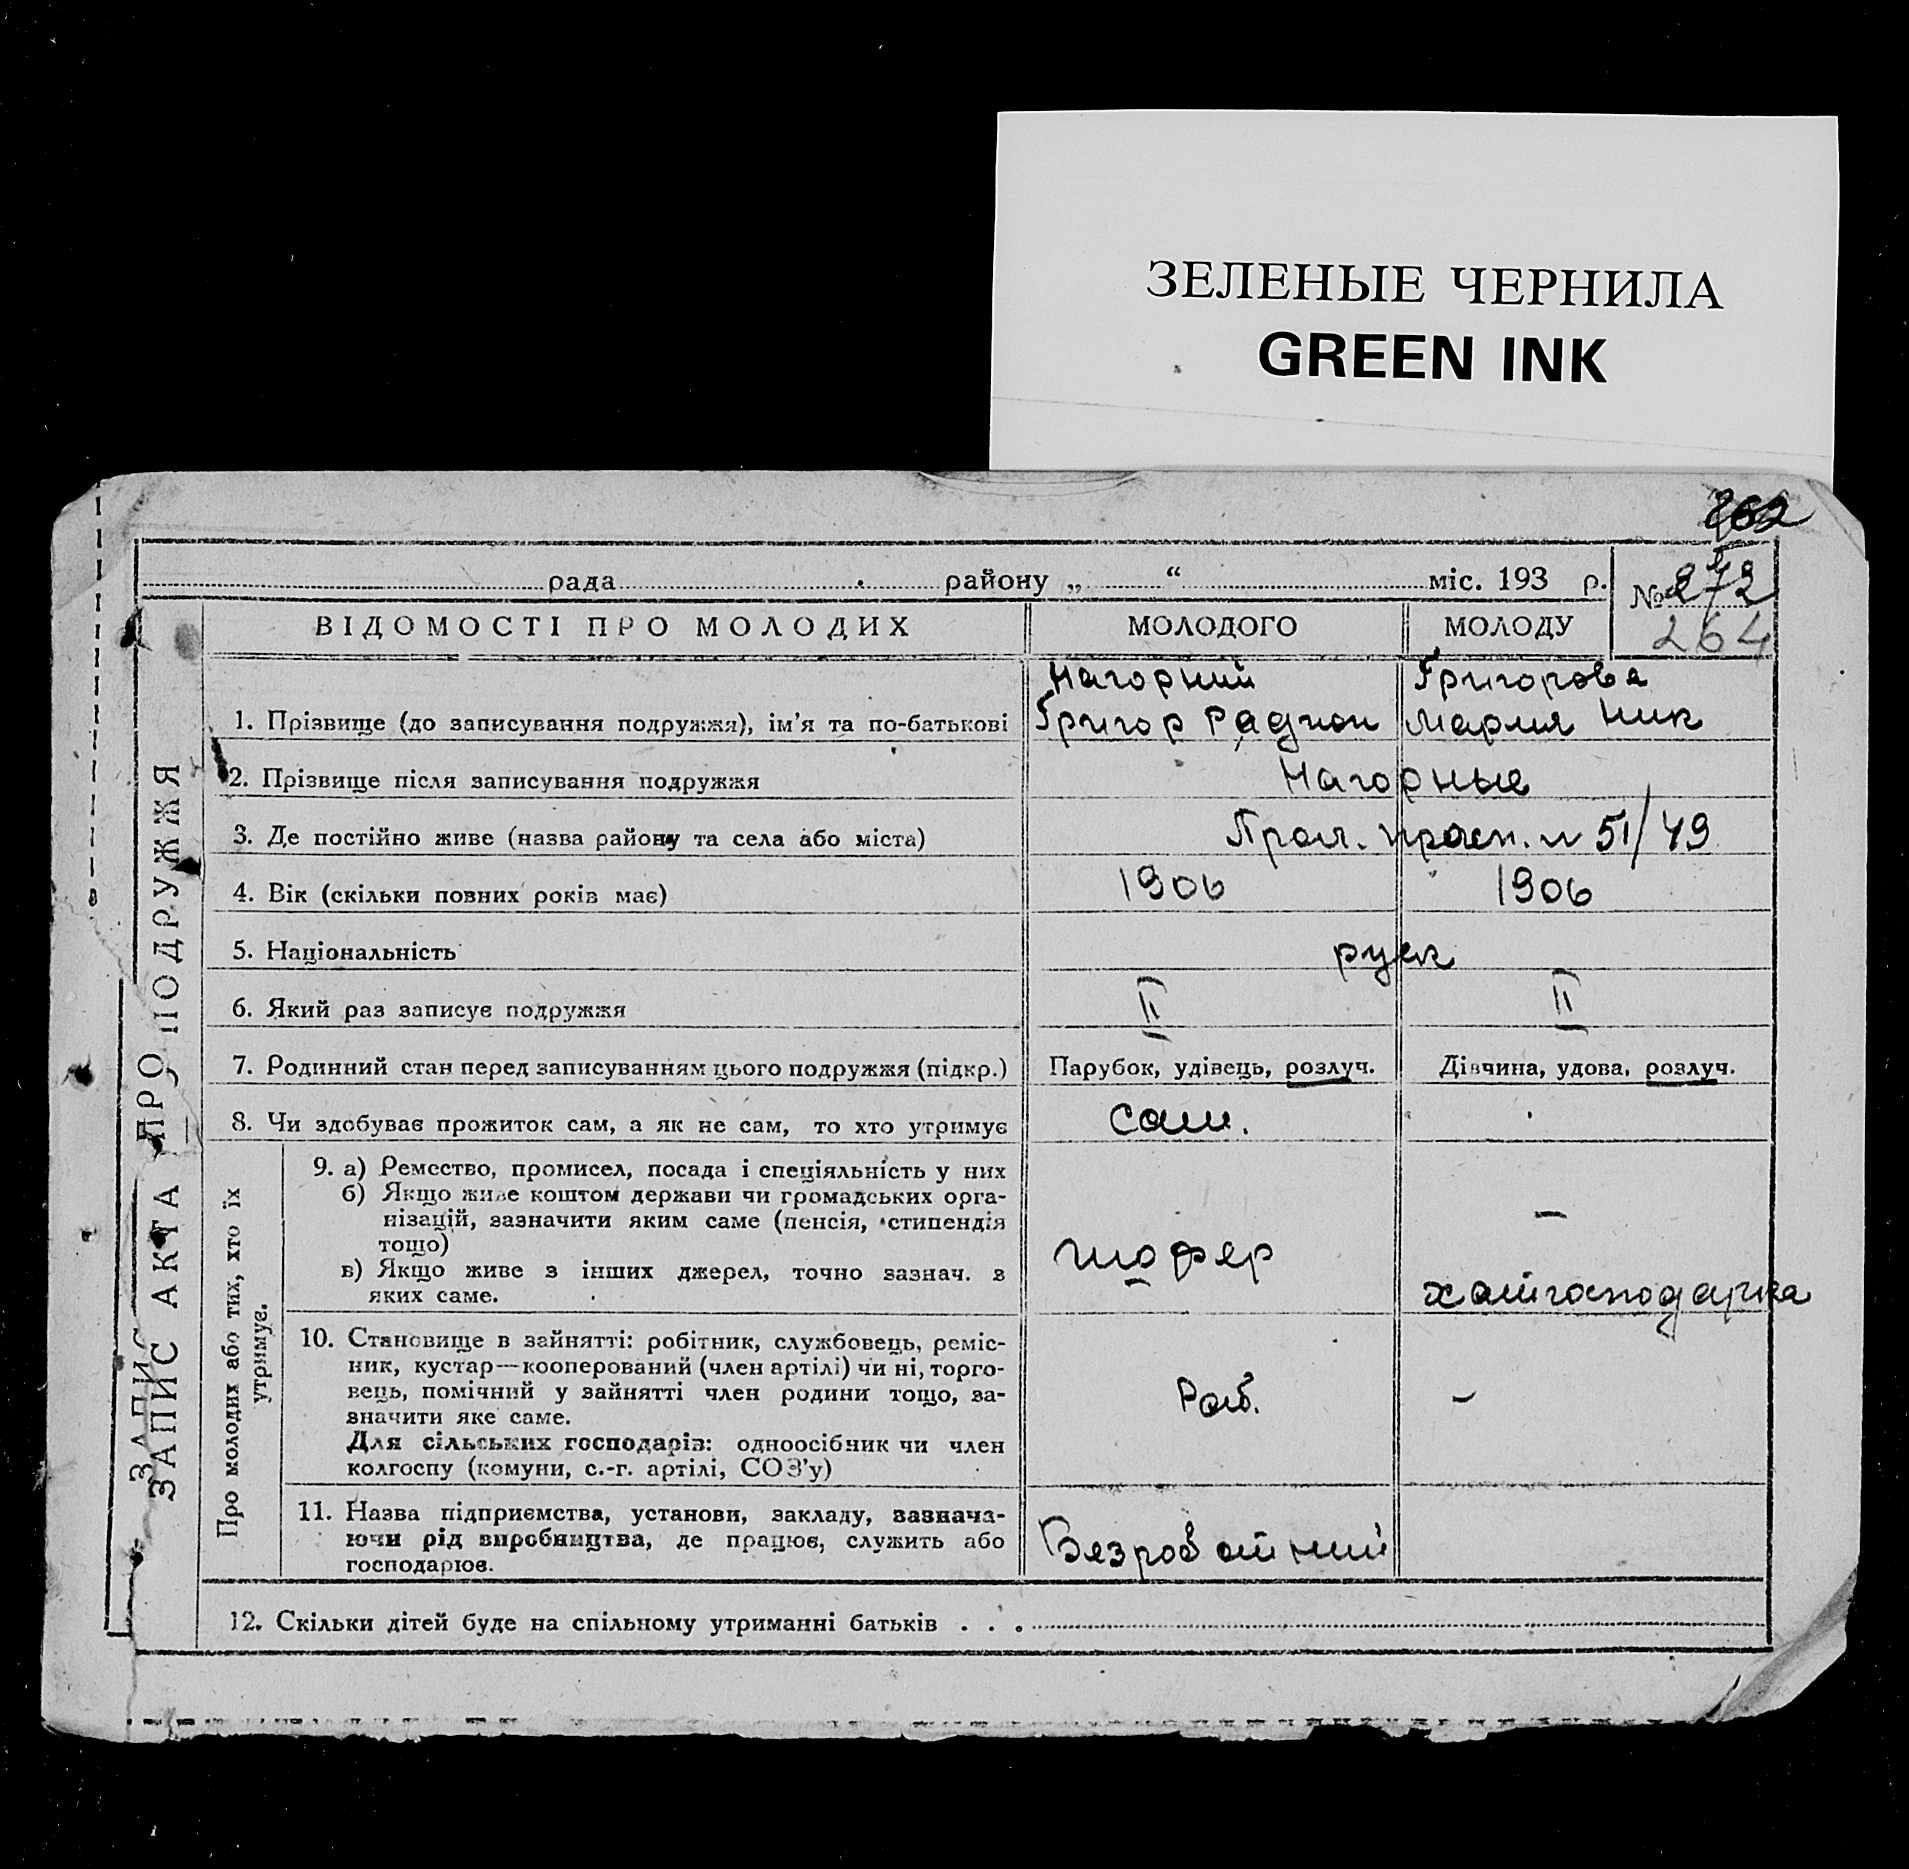 ЗЕЛЕНЫЕ ЧЕРНИЛА
GREEN INK
рада района „ “ міс. 193 р.
№ 272
264
ЗАПИС АКТА ПРО ПОДРУЖЖЯ
ЗАПИС
ВІДОМОСТІ ПРО МОЛОДИХ МОЛОДОГО МОЛОДУ
Нагорний Григорова
1. Прізвище (до записування подружжя), ім'я та по-батькові Григор Радион Мария Ник
2. Прізвище після записування подружжя Нагорные
3. Де постійно живе (назва району та села або міста) просп. 51/49
4. Вік (скільки повних років має) 1906 1906
5. Національність руск
6. Який раз записує подружжя II II
7. Родинний стан перед записуванням цього подружжя (підкр.) Парубок, удівець, розлуч. Дівчина, удова, розлуч.
8. Чи здобуває прожиток сам, а як не сам, то хто утримує сам.
Про молодих або тих, хто їх
утримує.
9. а) Ремество, промисел, посада і спеціяльність у них
б) Якщо живе коштом держави чи громадських орга-
нізацій, зазначити яким саме (пенсія, стипендія
тощо)
в) Якщо живе з інших джерел, точно зазнач. з
яких саме.
шофер —
хатгосподарка
10. Становище в зайнятті: робітник, службовець, реміс-
ник, кустар—кооперований (член артілі) чи ні, торго-
вець, помічний у зайнятті член родини тощо, за-
значити яке саме.
Для сільських господарів: одноосібник чи член
колгоспу (комуни, с.-г. артілі, СОЗ'у)
Роб. –
11. Назва підприємства, установи, закладу, зазнача-
ючи рід виробництва, де працює, служить або
господарює.
Безработний
12. Скільки дітей буде на спільному утриманні батьків . . .